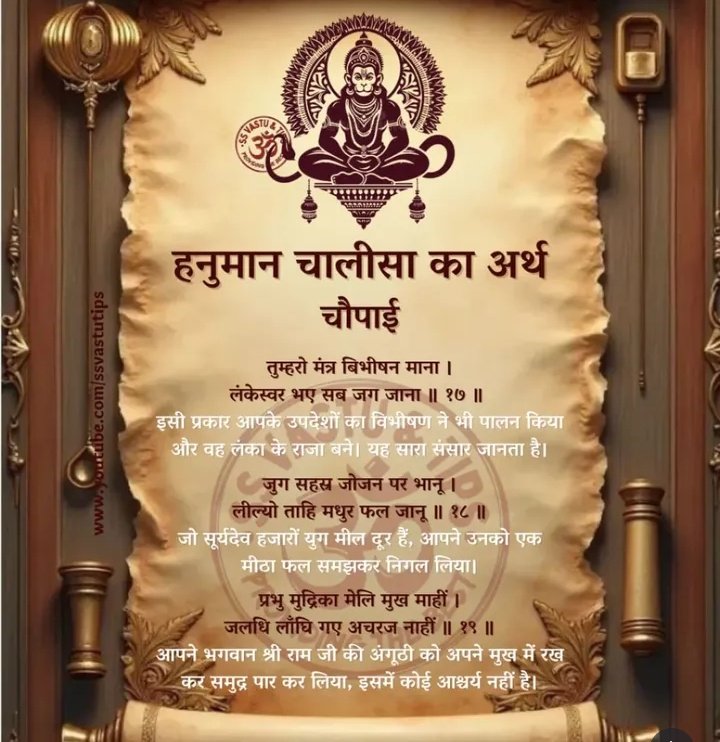 SS VASTU & TIPS
हनुमान चालीसा का अर्थ
चौपाई
तुम्हरो मंत्र बिभीषन माना ।
लंकेस्वर भए सब जग जाना ॥ १७ ॥
इसी प्रकार आपके उपदेशों का विभीषण ने भी पालन किया
और वह लंका के राजा बने। यह सारा संसार जानता है।
जुग सहस्र जोजन पर भानू ।
लील्यो ताहि मधुर फल जानू ॥ १८ ॥
जो सूर्यदेव हजारों युग मील दूर हैं, आपने उनको एक
मीठा फल समझकर निगल लिया।
प्रभु मुद्रिका मेलि मुख माहीं ।
जलधि लाँघि गए अचरज नाहीं ॥ १९ ॥
आपने भगवान श्री राम जी की अंगूठी को अपने मुख में रख
कर समुद्र पार कर लिया, इसमें कोई आश्चर्य नहीं है।
www.youtube.com/ssvastutips
SS VASTU & TIPS
ॐ